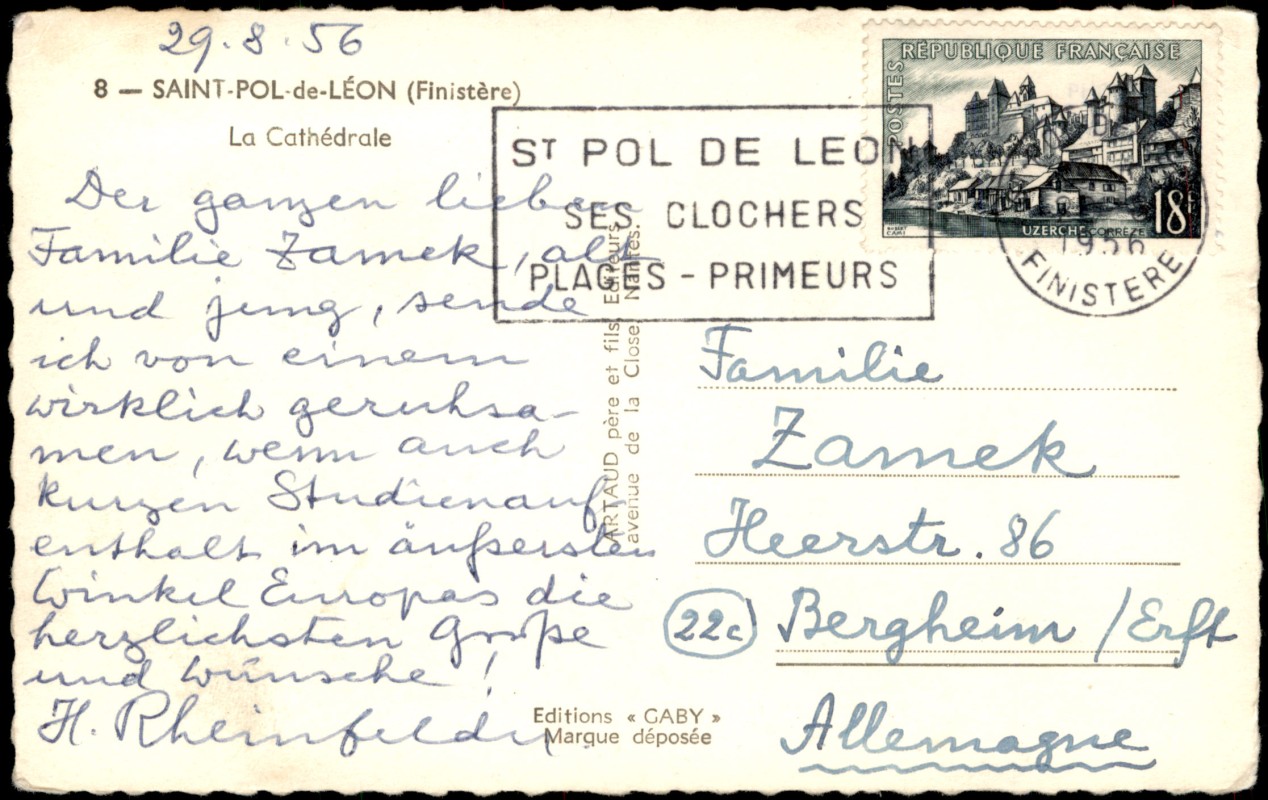 29.8.56
8 — SAINT-POL-de-LÉON (Finistère)
La Cathédrale
Der ganzen lieben
Familie Zamek, alt
und jung, sende
ich von einem
wirklich geruhsa-
men, wenn auch
kurzen Studienauf-
enthalt im äußersten
Winkel Europas die
herzlichsten Grüße
und Wünsche!
H. Rheinfelder
ARTAUD père et fils, Editeurs
avenue de la Close, Nantes.
Editions « GABY »
Marque déposée
ST POL DE LEON
SES CLOCHERS
PLAGES - PRIMEURS
RÉPUBLIQUE FRANÇAISE
POSTES
18F
UZERCHE CORRÈZE
1956
FINISTERE
Familie
Zamek
Heerstr. 86
22c Bergheim /Erft
Allemagne